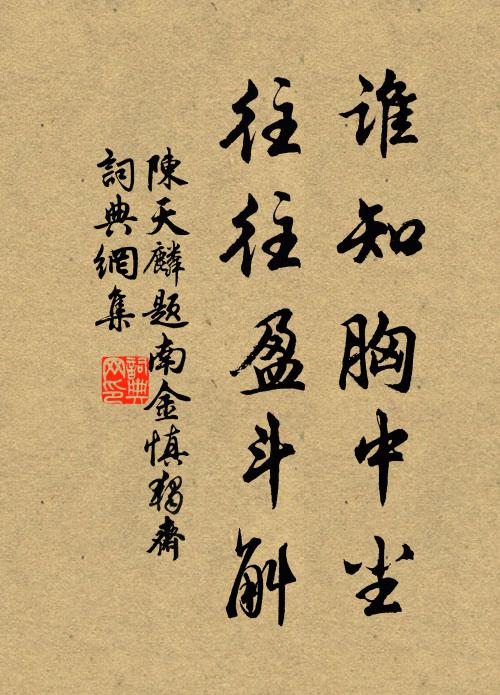 谁知胸中尘
往往盈斗斛
陳天麟題南金慎獨齋
詞典網集
詞典網印